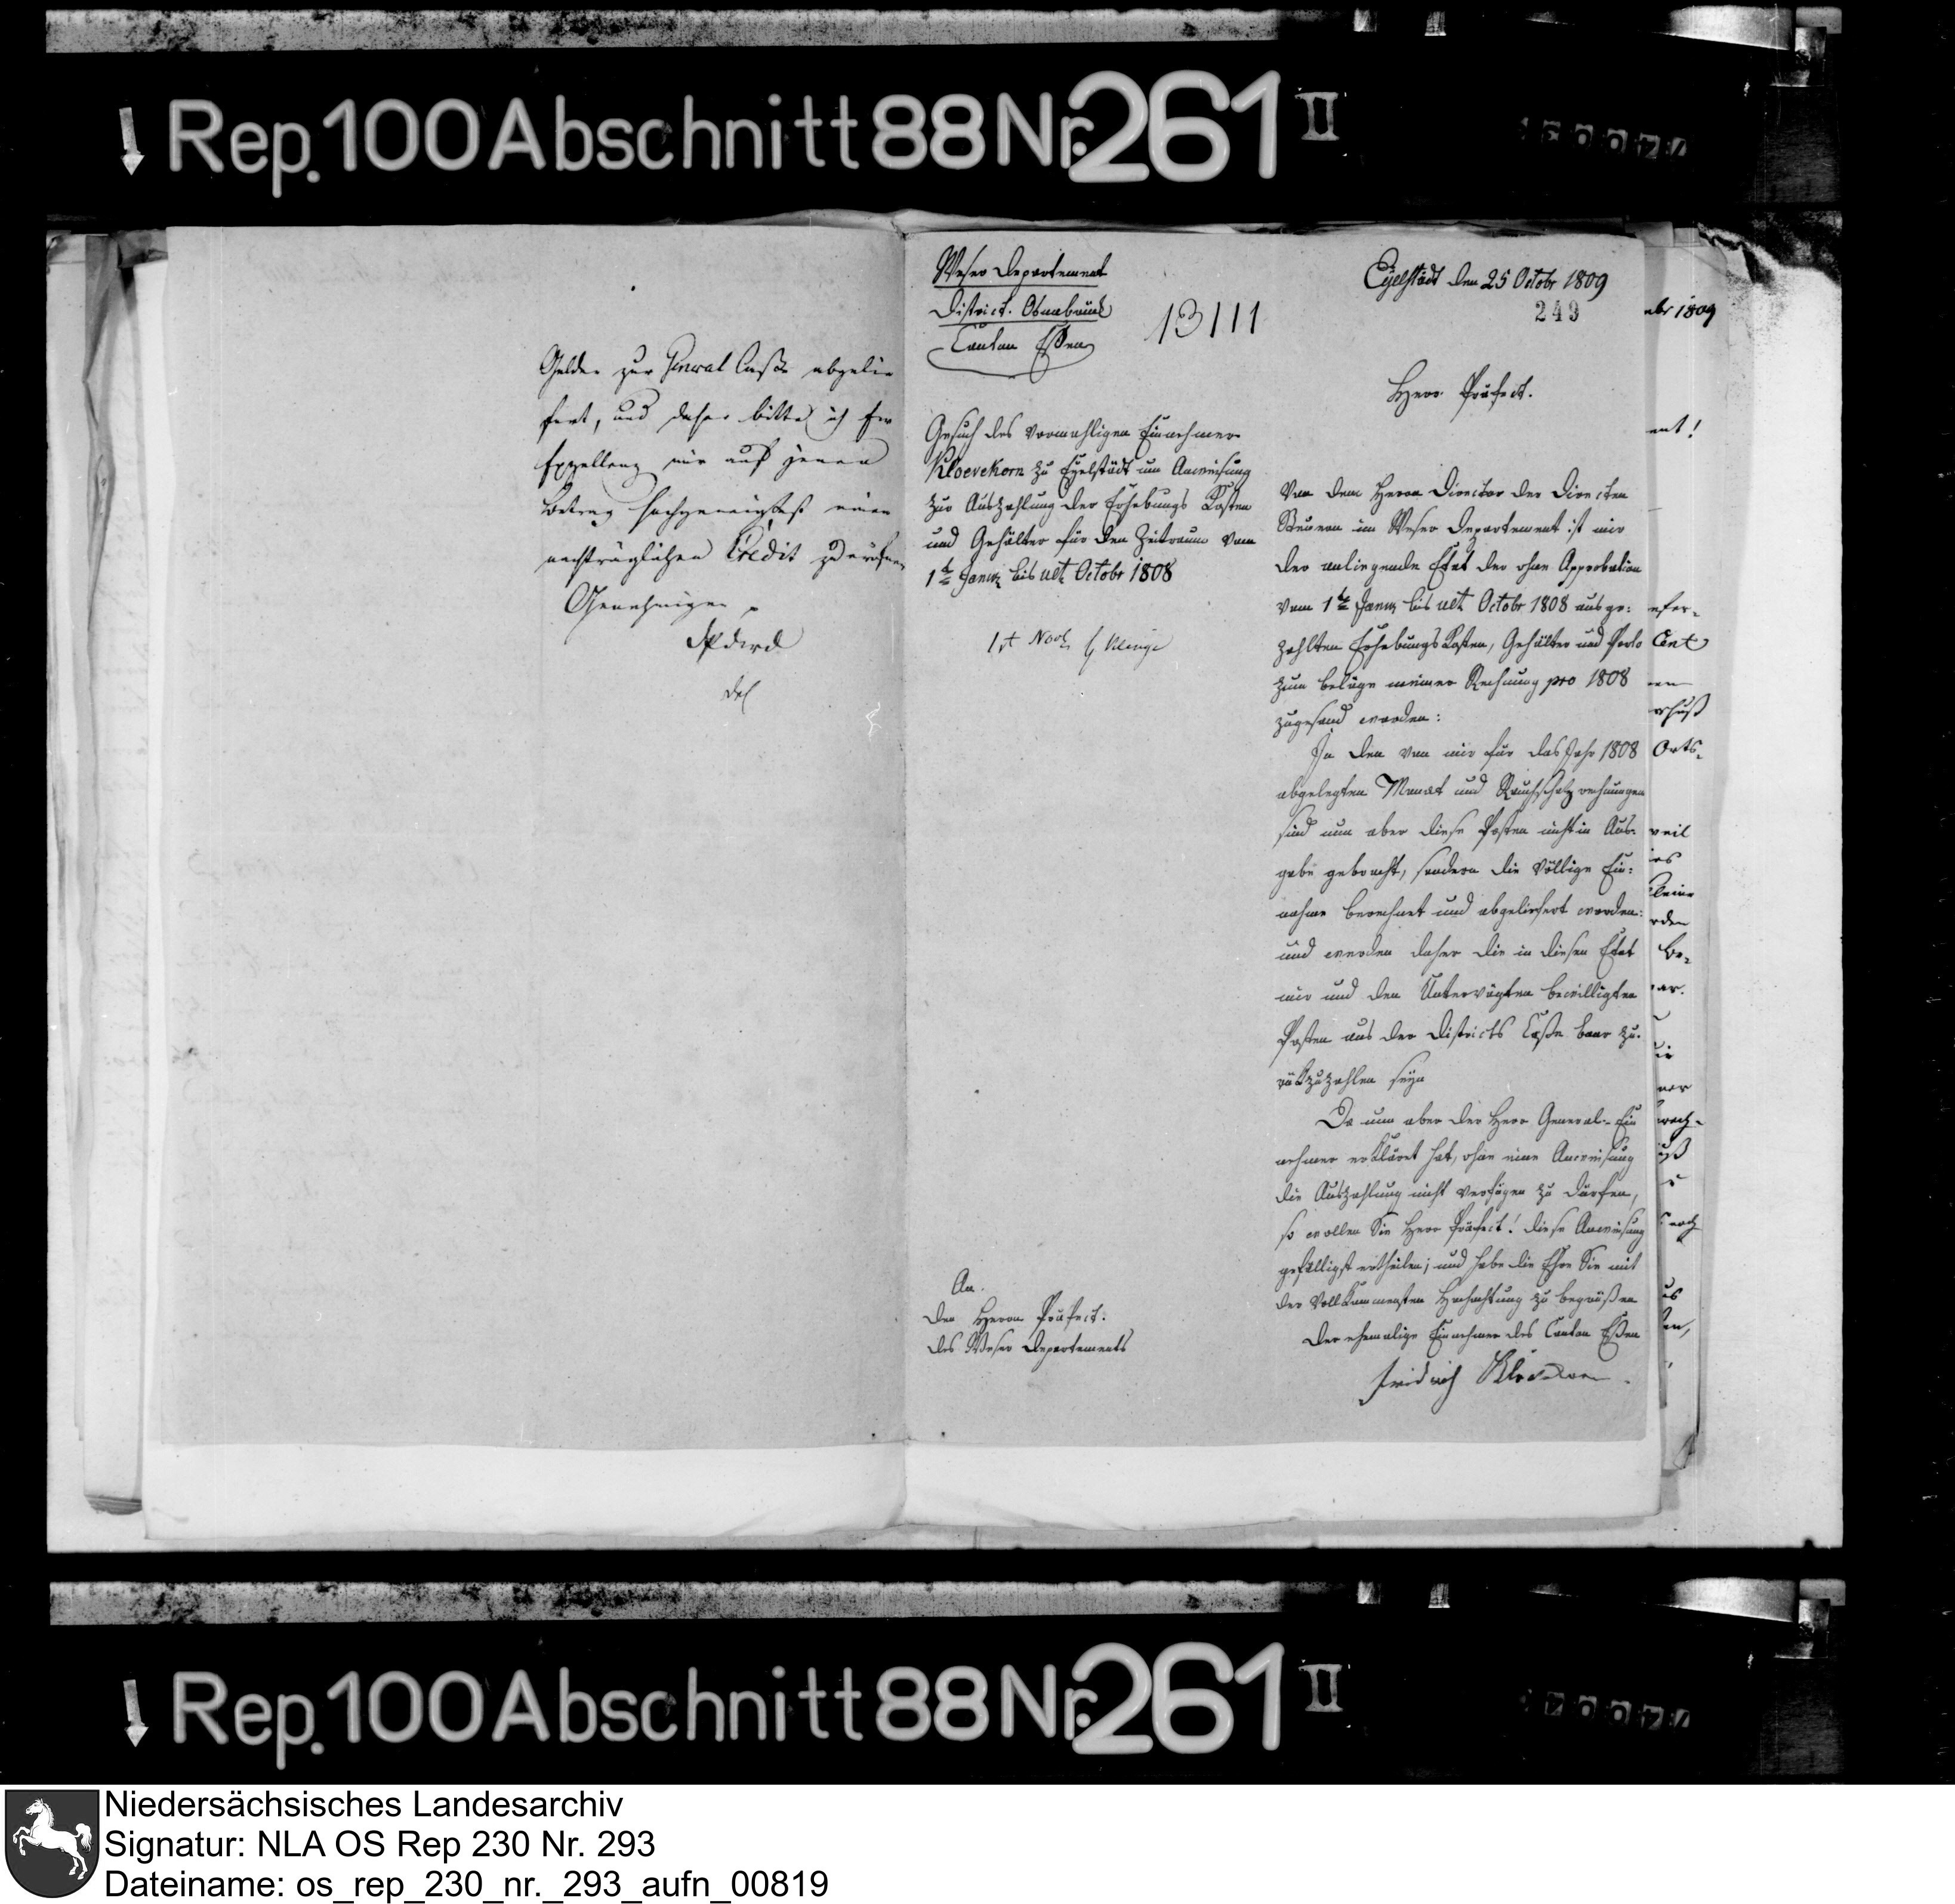 Rep. 100 Abschnitt 88 Nr. 261 II
Gelder zur General Casse abgelie
fert, und daher bitte ich Ew
Exzellenz mir auf jenen
Betrag hochgeneigtest einen
nachträglichen Credit zu eröfnen
Genehmigen
Weser Departement
District. Osnabrück
Canton Essen
13111
Eyelstädt den 25 Octobr 1809
249
Herr Präfect.
Gesuch des vormahligen Einnehmer
Kloevekorn zu Eyelstädt um Anweisung
zur Auszahlung der Erhebungs Kosten
und Gehälter für den Zeitraum vom
1t Januar bis ult Octobr 1808
1st Novb
Von dem Herrn Director der Directen
Steuern im Weser Departement ist mir
der anliegende Etat der ohne Approbation
vom 1t Januar bis ult Octobr 1808 ausge:
zahlten Erhebungs Kosten, Gehälter und Porto
zum belege meiner Rechnung pro 1808
zugesand worden:
In den von mir für das Jahr 1808
abgelegten Monat und Rauchschatz rechnungen
sind nun aber diese Posten nicht in Aus-
gabe gebracht, sondern die völlige Ein:
nahme berechnet und abgeliefert worden:
und werden daher die in diesen Etat
mir und den Untervögten bewilligten
Posten aus der Districts Casse baar zu-
rükzuzahlen seyn
Da nun aber der Herr General-Ein
nehmer erkläret hat, ohne eine Anweisung
die Auszahlung nicht verfügen zu dürfen,
so wollen Sie Herr Präfect! diese Anweisung
gefälligst ertheilen; und habe die Ehre Sie mit
der Vollkommensten Hochachtung zu begrüßen
Der ehemalige Einnehmer des Canton Essen
Friedrich Klövekorn
An.
den Herrn Präfect:
des Weser Departements
nbr 1809
ent!
Cent
Orts-
weil
kleine
rden
Be-
noch
Rep. 100 Abschnitt 88 Nr. 261 II
Niedersächsisches Landesarchiv
Signatur: NLA OS Rep 230 Nr. 293
Dateiname: os_rep_230_nr._293_aufn_00819